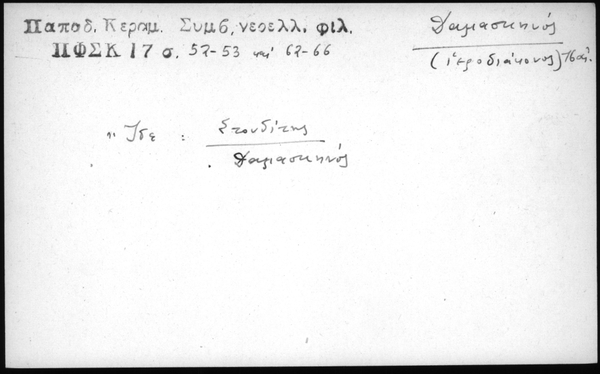 Παπαδ. Κεραμ. Συμβ, νεοελλ. φιλ.
ΠΦΣΚ 17 σ. 52-53 καί 62-66
Δαμασκηνός
(ἱεροδιάκονος) 16 αἰ.
Ἴδε : Στουδίτης
Δαμασκηνός